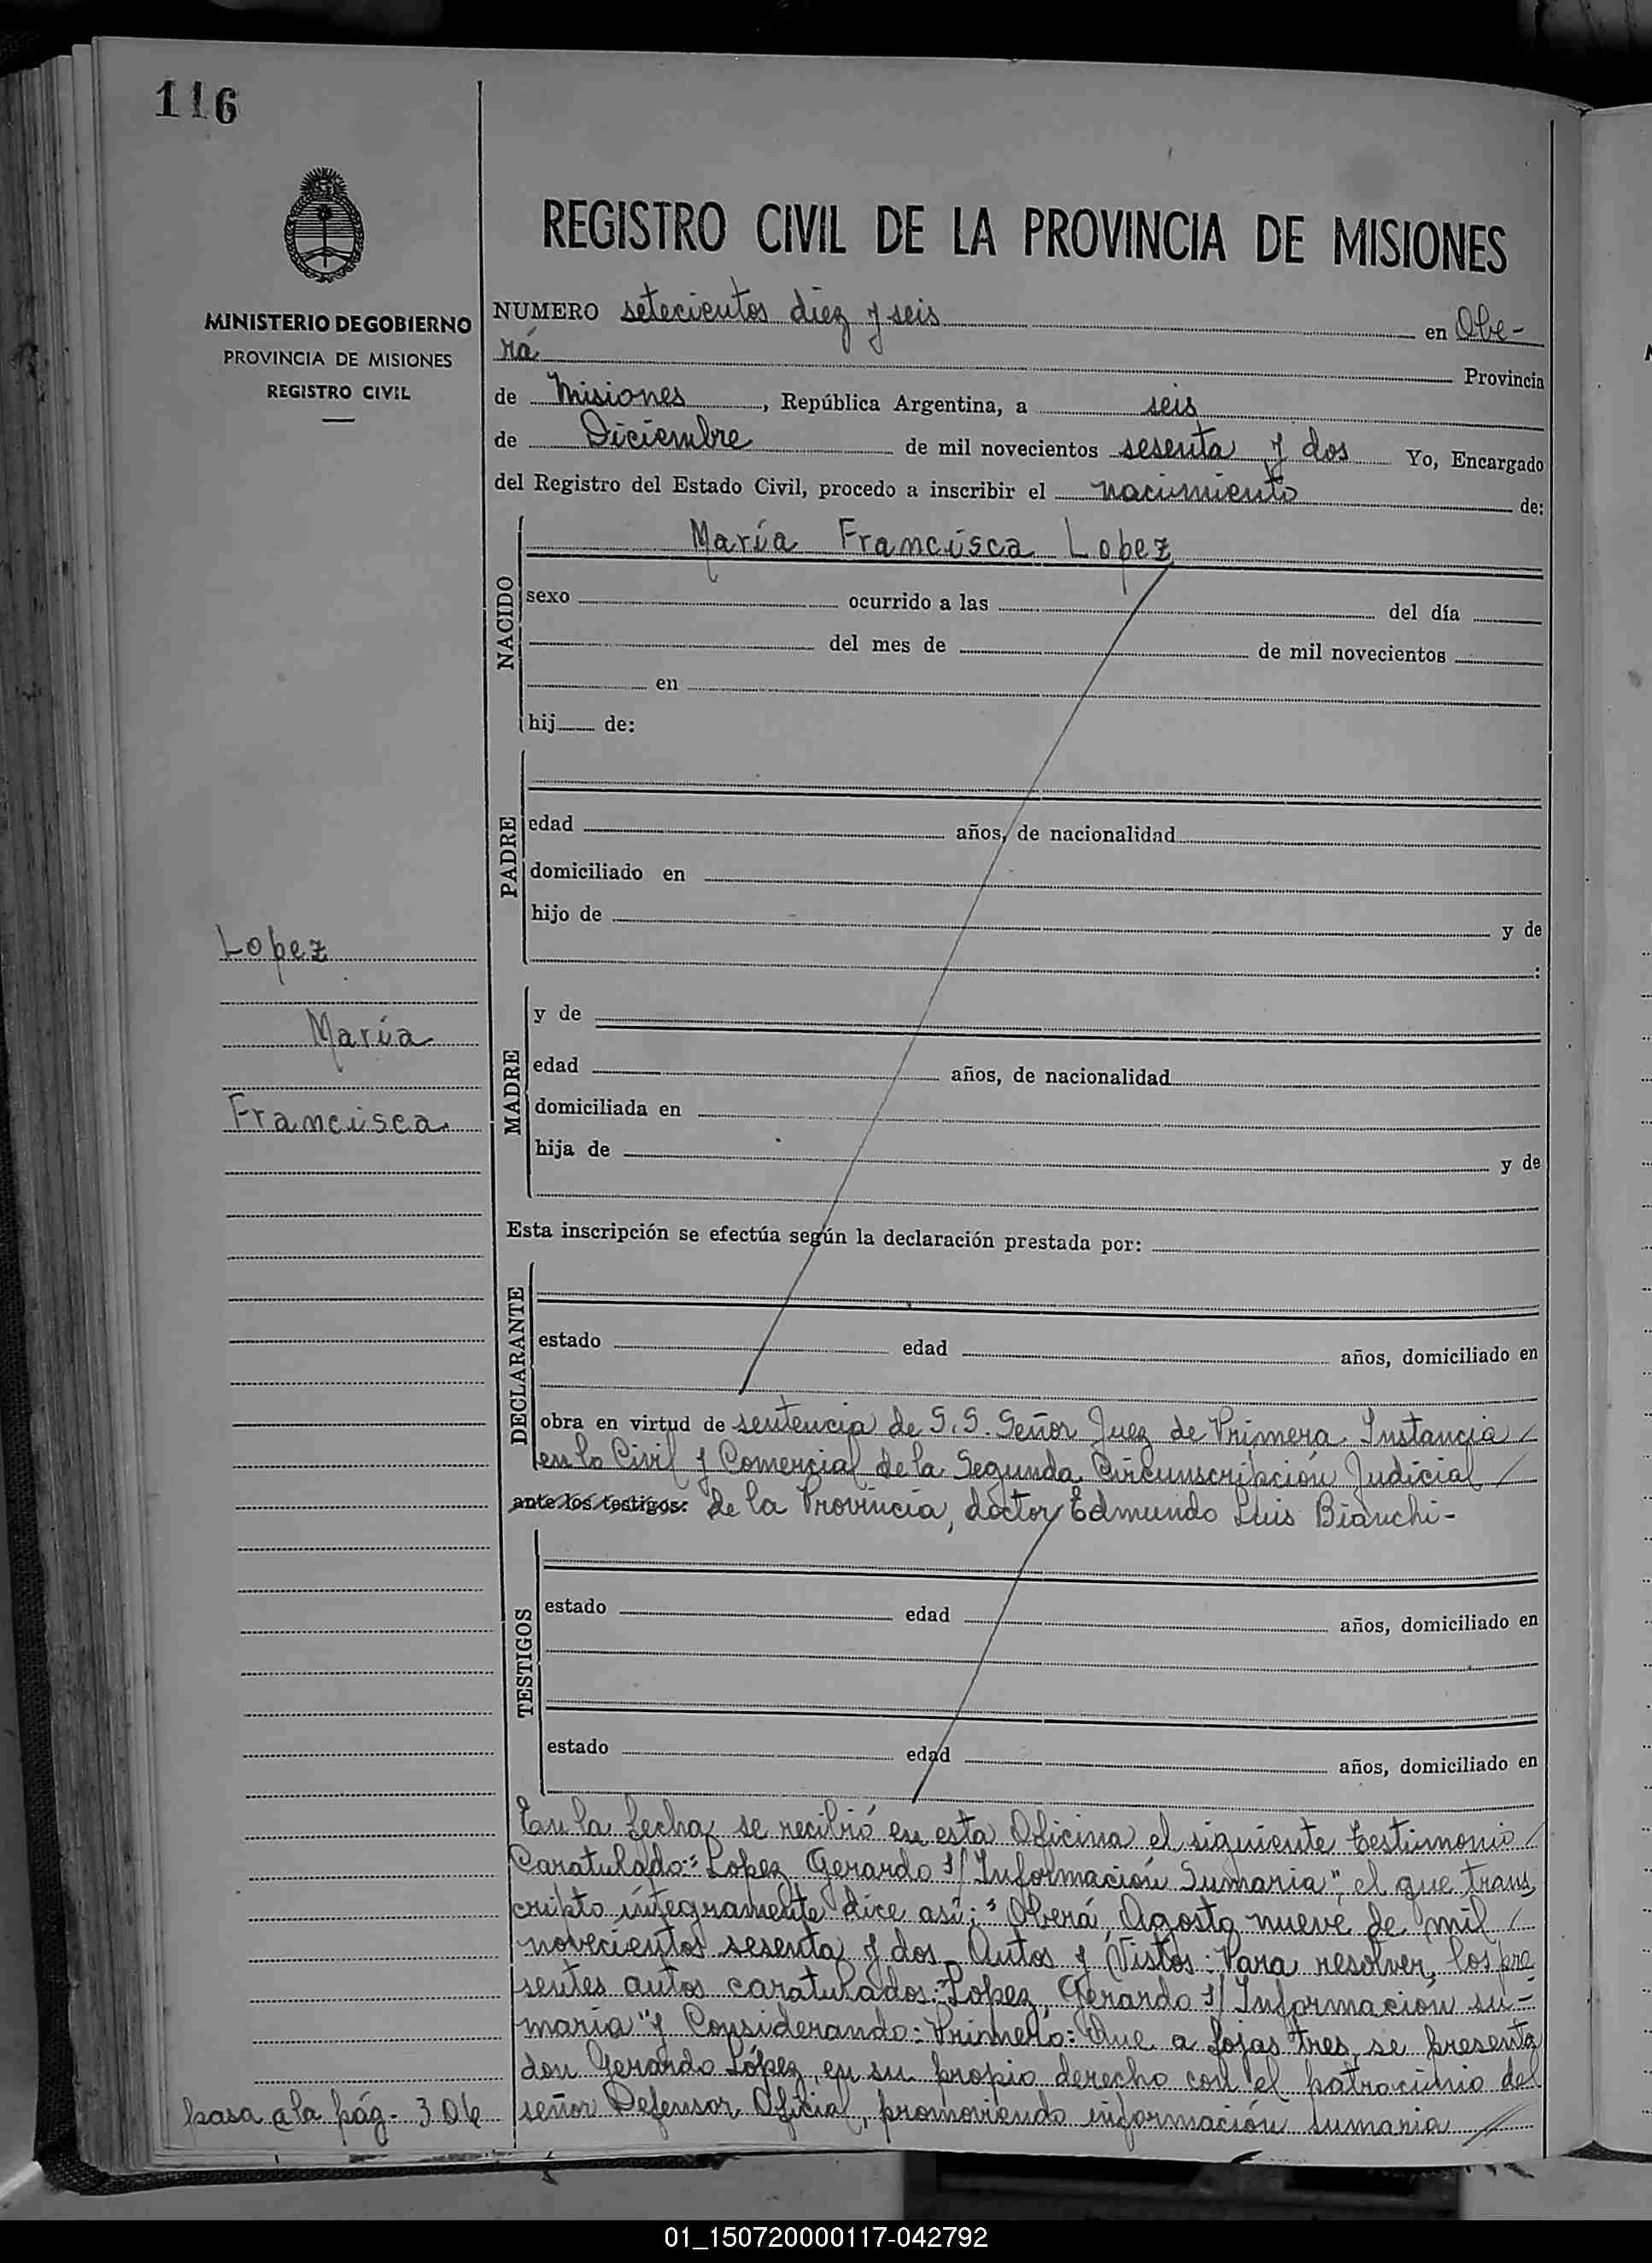 116
REGISTRO CIVIL DE LA PROVINCIA DE MISIONES
MINISTERIO DE GOBIERNO
PROVINCIA DE MISIONES
REGISTRO CIVIL
NUMERO setecientos diez y seis en Obe-
rá Provincia
de Misiones, República Argentina, a seis
de Diciembre de mil novecientos sesenta y dos Yo, Encargado
del Registro del Estado Civil, procedo a inscribir el nacimiento de:
NACIDO
María Francisca Lopez
sexo ocurrido a las del día
del mes de de mil novecientos
en
hij de:
PADRE
edad años, de nacionalidad
domiciliado en
hijo de y de
:
Lopez
María
Francisca
MADRE
y de
edad años, de nacionalidad
domiciliada en
hija de y de
Esta inscripción se efectúa según la declaración prestada por:
DECLARANTE
estado edad años, domiciliado en
obra en virtud de sentencia de S.S. Señor Juez de Primera Instancia
en lo Civil y Comercial de la Segunda Circunscripción Judicial
ante los testigos: de la Provincia, doctor Edmundo Luis Bianchi-
TESTIGOS
estado edad años, domiciliado en
estado edad años, domiciliado en
En la fecha se recibió en esta Oficina el siguiente testimonio
Caratulado:"Lopez Gerardo s/Información Sumaria", el que trans
cripto íntegramente dice así: "Oberá, Agosto nueve de mil
novecientos sesenta y dos. Autos y Vistos: Para resolver, los pre
sentes autos caratulados:"Lopez, Gerardo s/Información su-
maria" y Considerando: Primero: Que a fojas tres, se presenta
don Gerardo López, en su propio derecho con el patrocinio del
señor Defensor Oficial, promoviendo información sumaria
pasa a la pág. 304
01_150720000117-042792